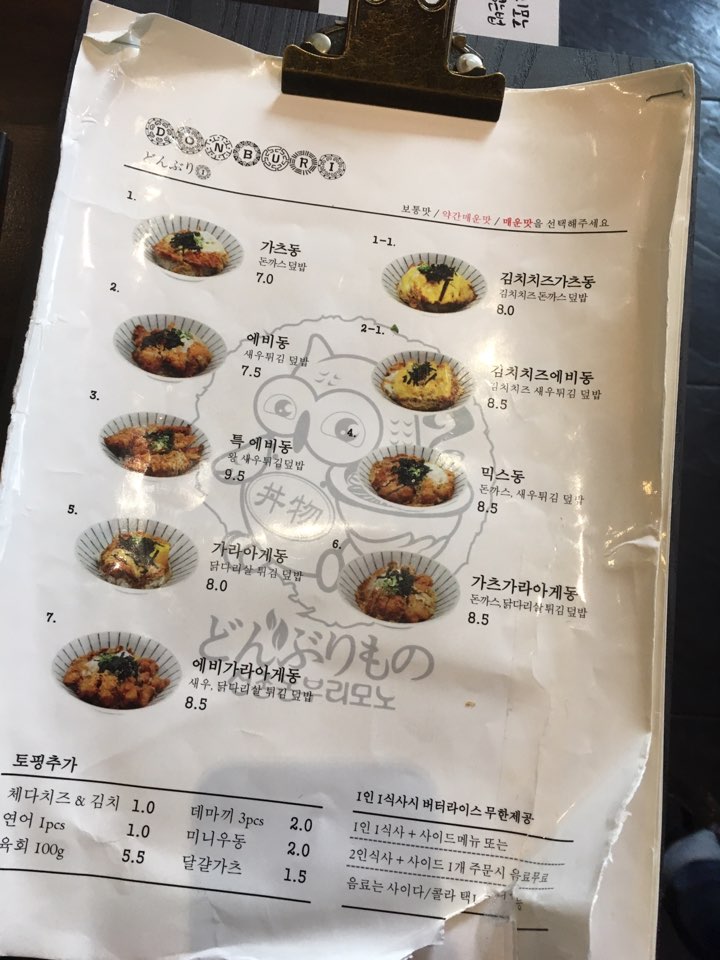 DONBURI
どんぶり
보통맛 / 약간매운맛 / 매운맛을 선택해주세요
1.
가츠동
돈까스 덮밥
7.0
1-1.
김치치즈가츠동
김치치즈 돈까스 덮밥
8.0
2.
에비동
새우튀김 덮밥
7.5
2-1.
김치치즈에비동
김치치즈 새우튀김 덮밥
8.5
3.
특 에비동
왕 새우튀김덮밥
9.5
4.
믹스동
돈까스, 새우튀김 덮밥
8.5
5.
가라아게동
닭다리살 튀김 덮밥
8.0
6.
가츠가라아게동
돈까스,닭다리살튀김덮밥
8.5
7.
에비가라아게동
새우, 닭다리살 튀김 덮밥
8.5
丼物
どんぶりもの
부리모노
토핑추가
체다치즈 & 김치 1.0
연어 1pcs 1.0
육회 100g 5.5
데마끼 3pcs 2.0
미니우동 2.0
달걀가츠 1.5
1인 1식사시 버터라이스 무한제공
1인 1식사 + 사이드메뉴 또는
2인식사 + 사이드 1개 주문시 음료무료
음료는 사이다/콜라 택1